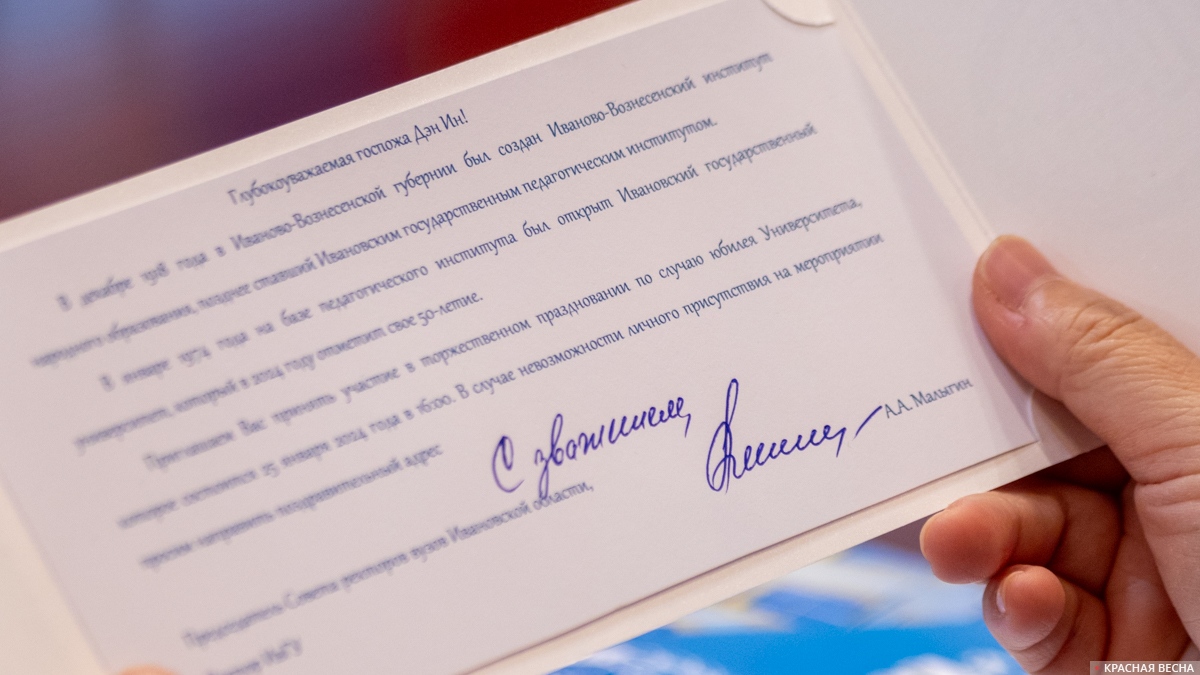 Глубокоуважаемая госпожа Дэн Ин!
В декабре 1918 года в Иваново-Вознесенской губернии был создан Иваново-Вознесенский институт
народного образования, позднее ставший Ивановским государственным педагогическим институтом.
В январе 1974 года на базе педагогического института был открыт Ивановский государственный
университет, который в 2024 году отметит свое 50-летие.
Приглашаем Вас принять участие в торжественном праздновании по случаю юбилея Университета,
которое состоится 25 января 2024 года в 16:00. В случае невозможности личного присутствия на мероприятии
просим направить поздравительный адрес
С уважением,
А.А. Малыгин
Председатель Совета ректоров вузов Ивановской области,
ИвГУ
КРАСНАЯ ВЕСНА